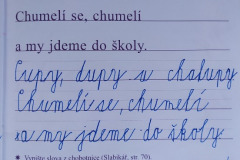 Chumelí se, chumelí
a my jdeme do školy.
Cupy, dupy u chalupy
Chumelí se, chumelí
a my jdeme do školy
● Vypište slova z chobotnice (Slabikář, str. 70).